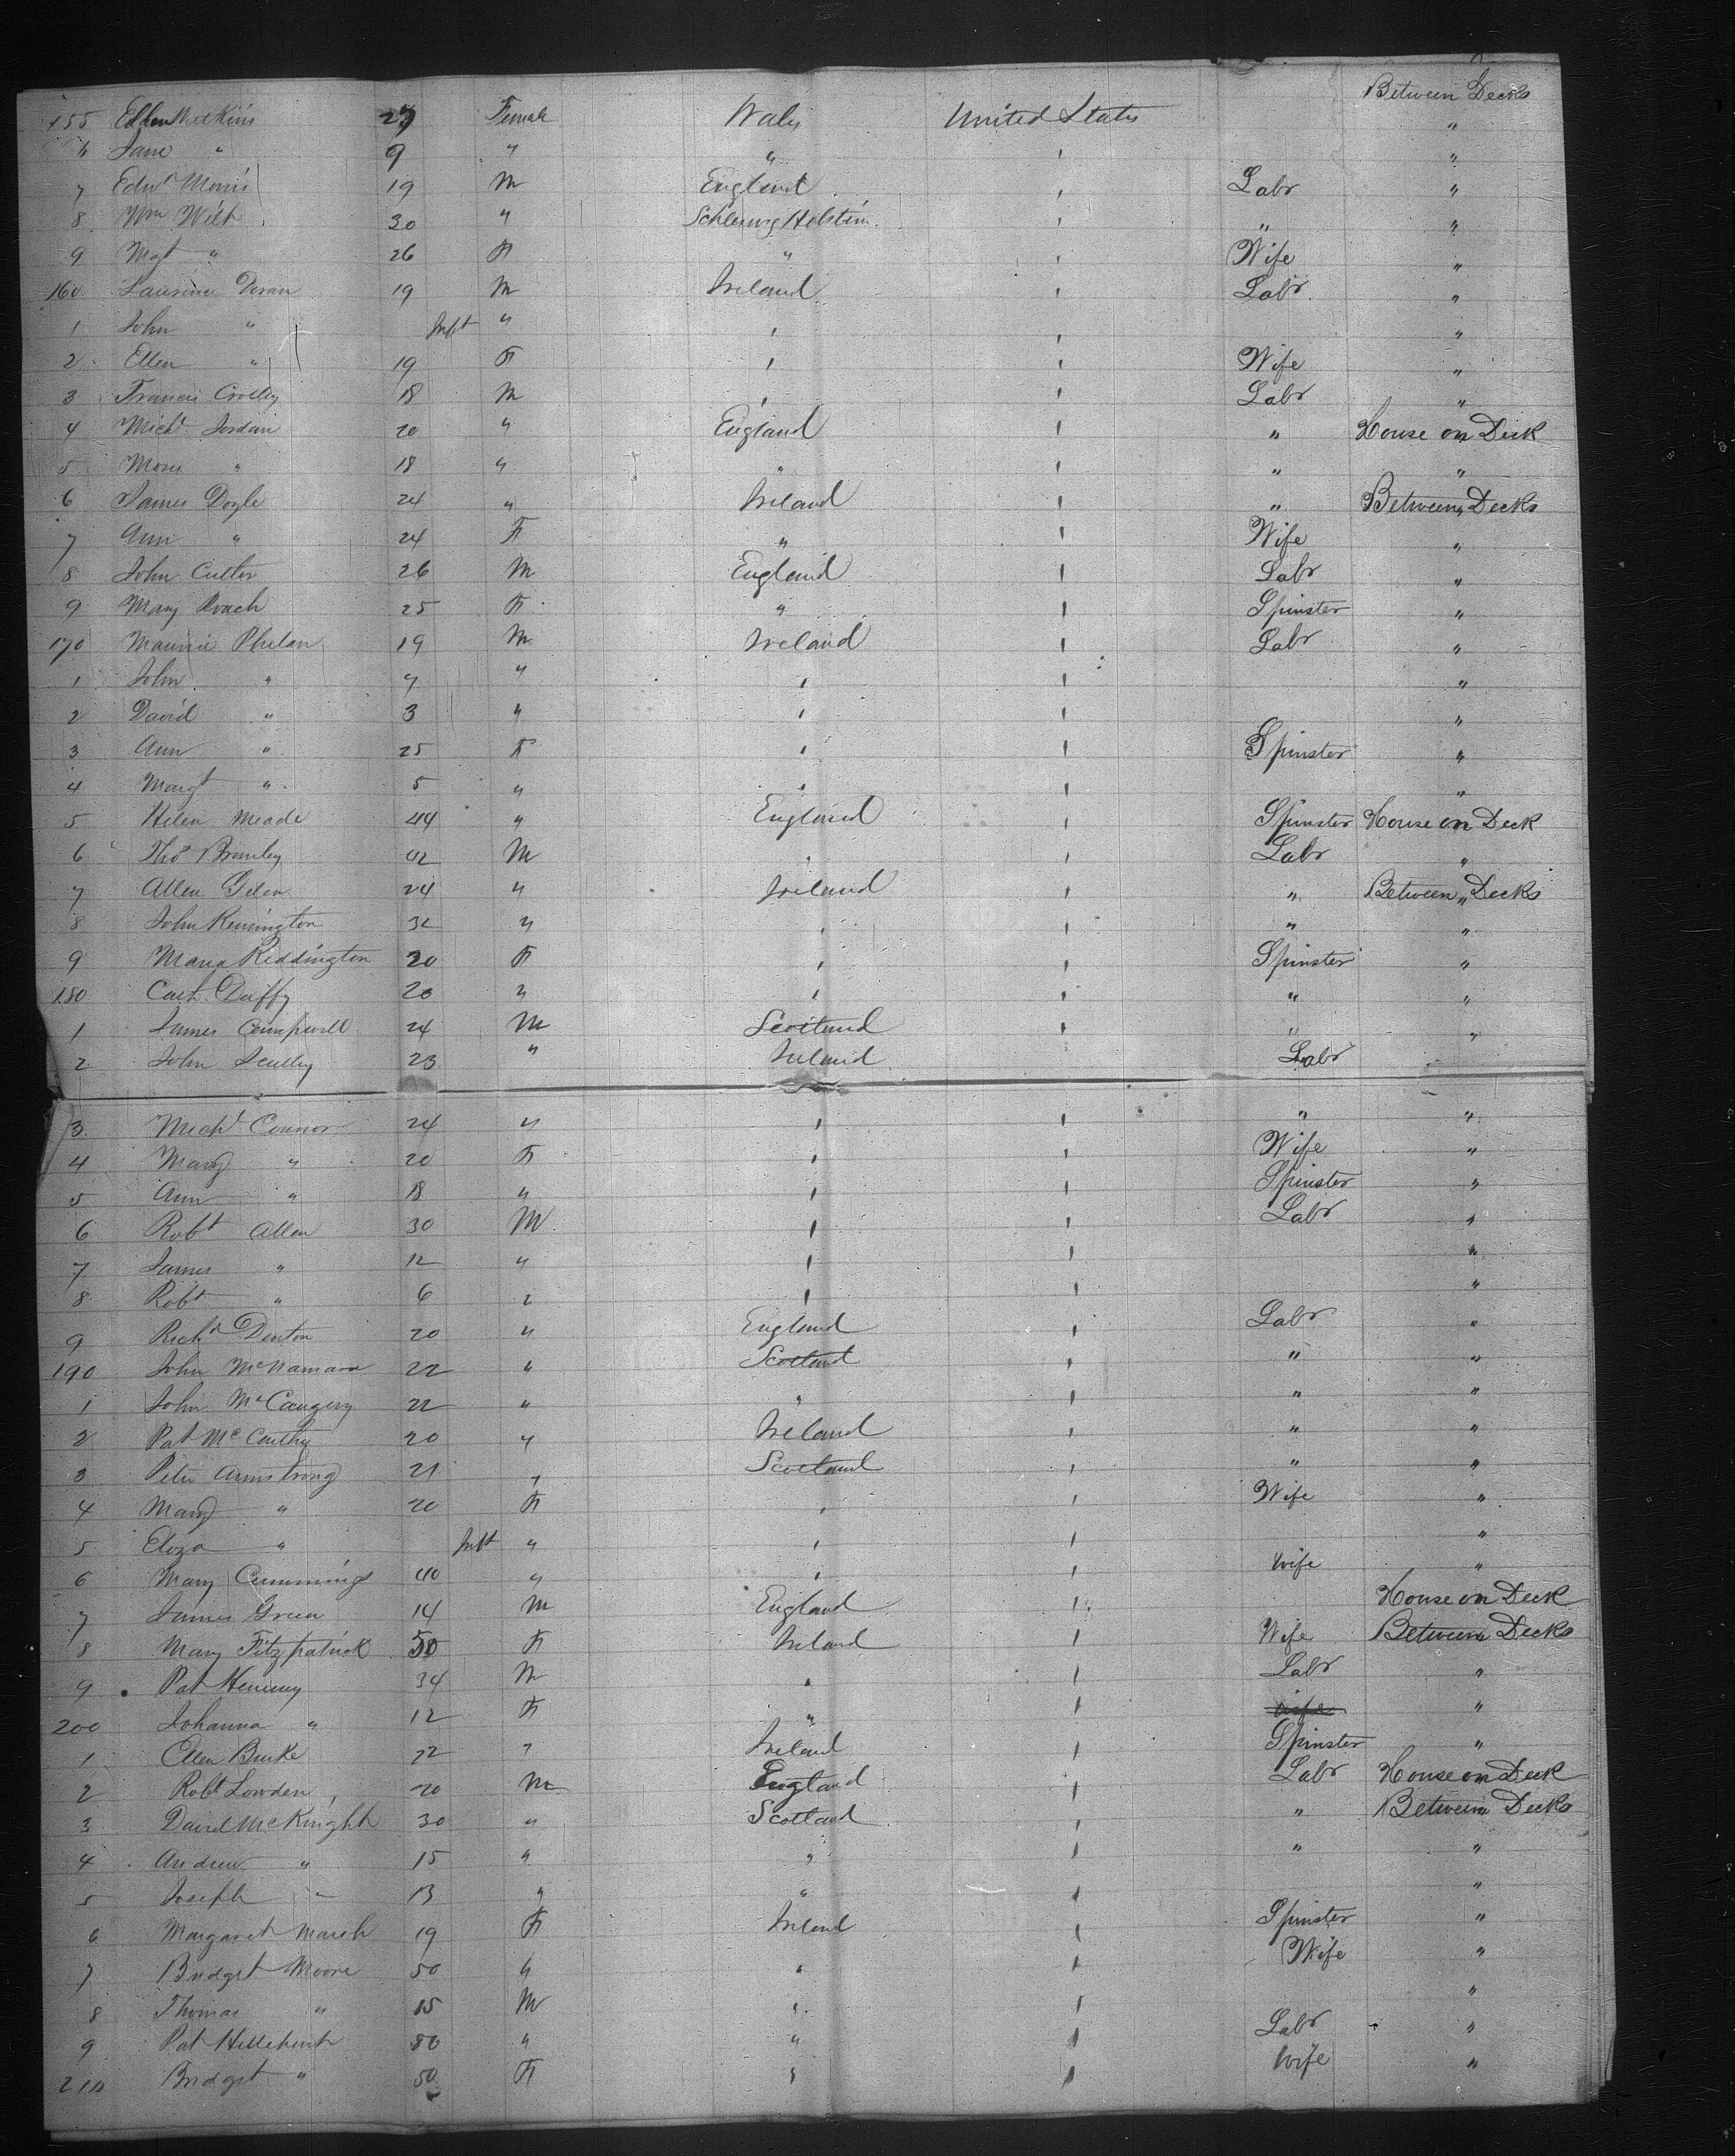 Between Decks
155 Ellen Watkins 29 Female Wales United States "
6 Jane " 9 " " " "
7 Edwd Morris 19 M England " Labr "
8 Wm Wilt 30 " Schleswig Holstein " " "
9 Mgt " 26 F " " Wife "
160 Laurence Doran 19 M Ireland " Labr "
1 John " Inft " " " "
2 Ellen " 19 F " " Wife "
3 Francis Crolly 18 M " " Labr "
4 Michl Jordan 20 " England " " House on Deck
5 Moses " 18 " " " " "
6 James Doyle 24 " Ireland " " Between Decks
7 Ann " 24 F " " Wife "
8 John Cutler 26 M England " Labr "
9 Mary Roach 25 F " " Spinster "
170 Maurice Phelan 19 M Ireland " Labr "
1 John " 7 " " " "
2 David " 3 " " " "
3 Ann " 25 F " " Spinster "
4 Margt " 5 " " " "
5 Helen Meade 44 " England " Spinster House on Deck
6 Thos Brimley 42 M " " Labr "
7 Allen 24 " Ireland " " Between Decks
8 John Kensington 32 " " " " "
9 Maria Riddington 20 F " " Spinster "
180 Cath. Duffy 20 " " " " "
1 James Campwell 24 M Scotland " " "
2 John Scully 23 " Ireland Labr
3 Michl Connor 24 " " " " "
4 Mary " 20 F " " Wife "
5 Ann " 18 " " " Spinster "
6 Robt Allen 30 M " " Labr "
7 James " 12 " " " "
8 Robt " 6 " " " "
9 Richd Denton 20 " England " Labr "
190 John McNamara 22 " Scotland " " "
1 John McCaugery 22 " " " " "
2 Pat McCarthy 20 " Ireland " " "
3 Peter Armstrong 21 " Scotland " " "
4 Mary " 20 F " " Wife "
5 Eliza " Inft " " " "
6 Mary Cummings 40 " " " Wife "
7 James Green 14 M England " House on Deck
8 Mary Fitzpatrick 50 F Ireland " Wife Between Decks
9 Pat Henessy 34 M " " Labr "
200 Johanna " 12 F " " wife "
1 Ellen Burke 22 " Ireland " Spinster "
2 Robt Lowden 20 M England " Labr House on Deck
3 David McKnight 30 " Scotland " " Between Decks
4 Andrew " 15 " " " " "
5 Joseph " 13 " " " "
6 Margaret March 19 F Ireland " Spinster "
7 Bridget Moore 50 " " " Wife "
8 Thomas " 15 M " " "
9 Pat 50 " " " Labr "
210 Bridget " 50 F " " Wife "